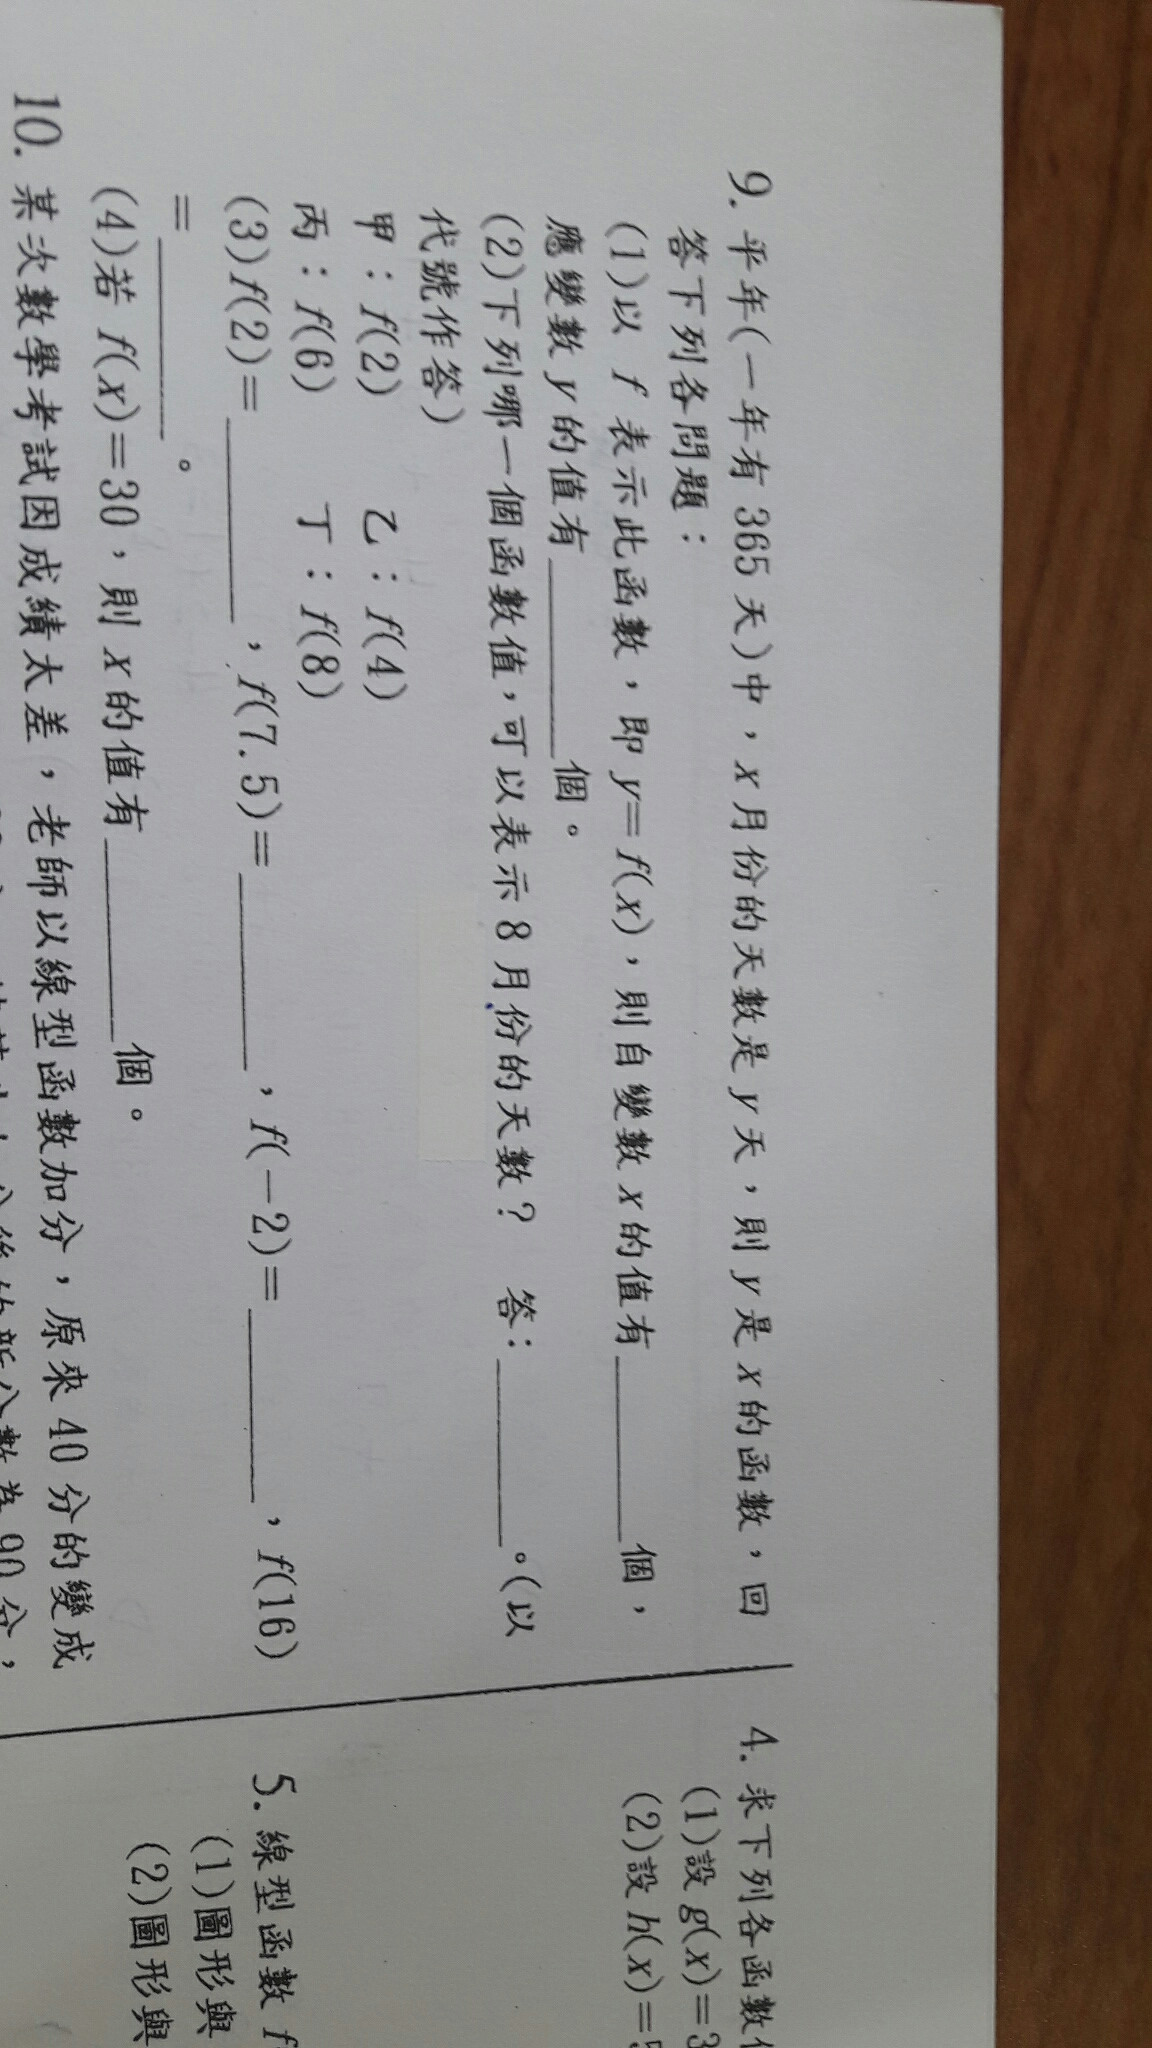 9. 平年(一年有 365 天)中，x 月份的天數是 y 天，則 y 是 x 的函數，回
答下列各問題：
(1)以 f 表示此函數，即 y=f(x)，則自變數 x 的值有______個，
應變數 y 的值有______個。
(2)下列哪一個函數值，可以表示 8 月份的天數？ 答：______。(以
代號作答)
甲：f(2) 乙：f(4)
丙：f(6) 丁：f(8)
(3)f(2)=______，f(7.5)=______，f(−2)=______，f(16)
=______。
(4)若 f(x)=30，則 x 的值有______個。
10. 某次數學考試因成績太差，老師以線型函數加分，原來 40 分的變成
分後的新分數為 90 分，
4. 求下列各函數
(1)設 g(x)=3
(2)設 h(x)=5
5. 線型函數 f
(1)圖形與
(2)圖形與